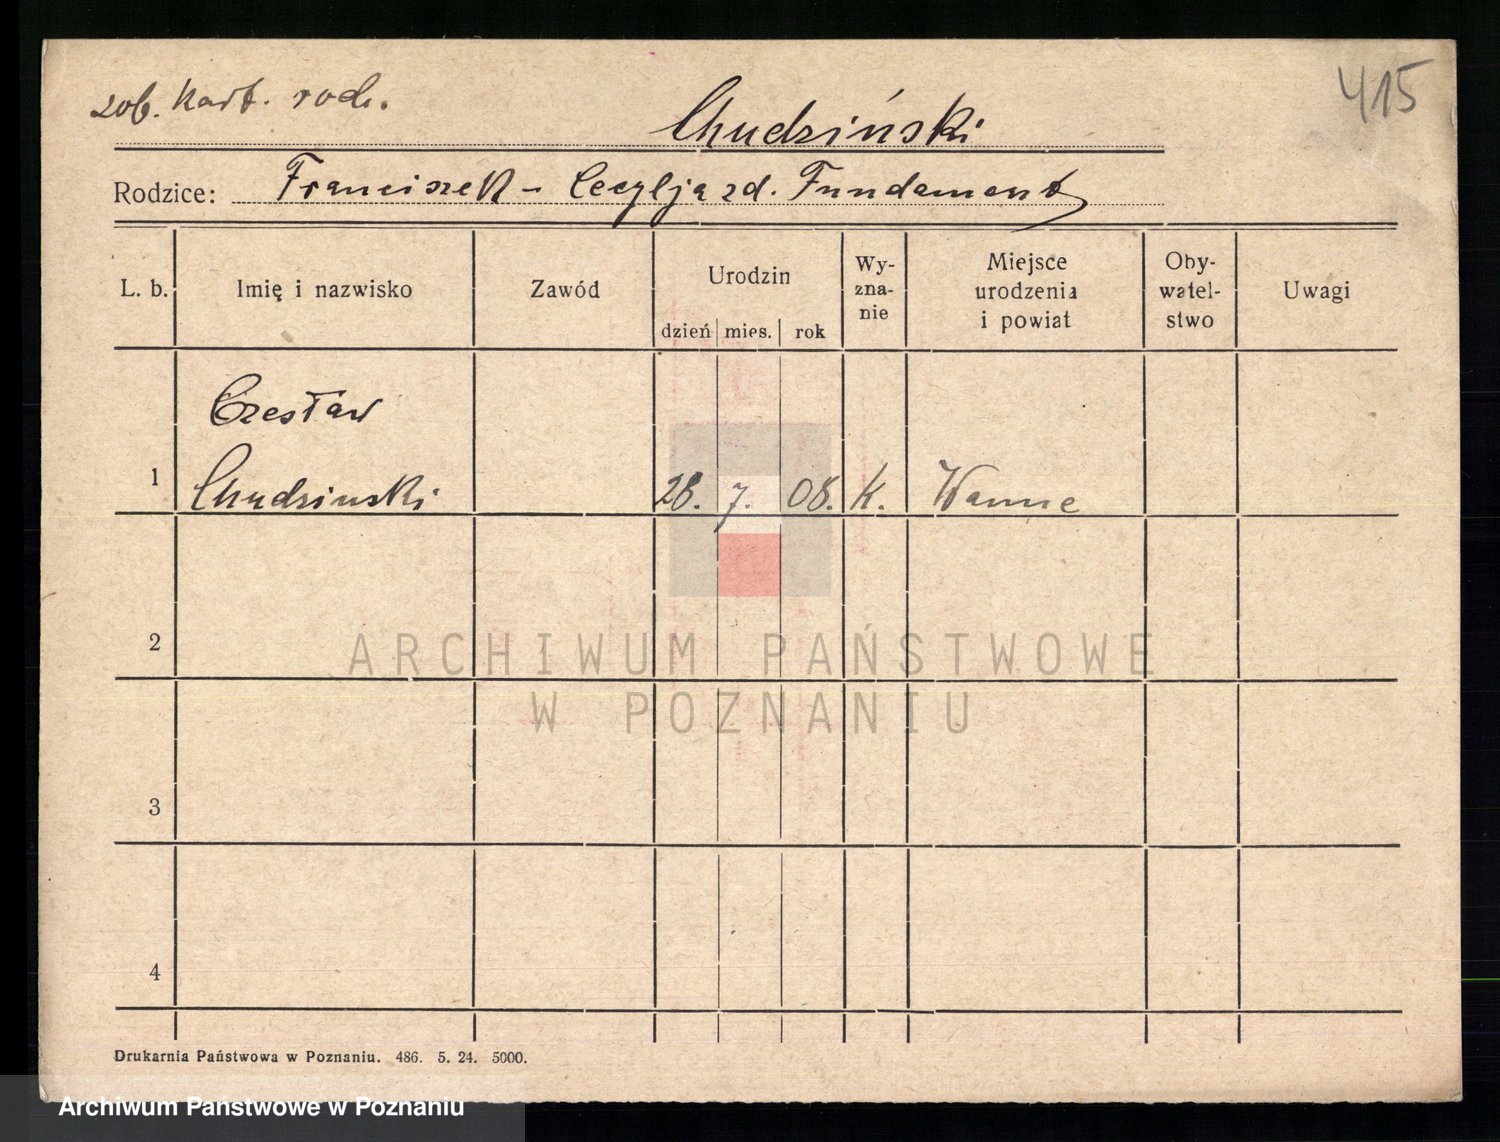 zob. kart. rodz.
415
Chudziński
Rodzice: Franciszek - Cecylja zd. Fundament
L. b.
Imię i nazwisko
Zawód
Urodzin
dzień mies. rok
Wy-
zna-
nie
Miejsce
urodzenia
i powiat
Oby-
watel-
stwo
Uwagi
Czesław
1 Chudzinski 28. 7. 08. K. Wanne
2
ARCHIWUM PAŃSTWOWE
W POZNANIU
3
4
Drukarnia Państwowa w Poznaniu. 486. 5. 24. 5000.
Archiwum Państwowe w Poznaniu